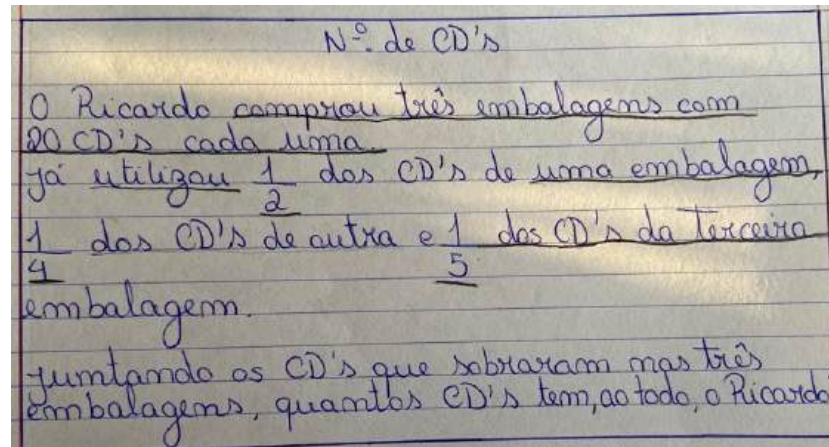 Nº. de CD's
O Ricardo comprou três embalagens com
20 CD's cada uma.
já utilizou 1/2 dos CD's de uma embalagem,
1/4 dos CD's de outra e 1/5 dos CD's da terceira
embalagem.
Juntando os CD's que sobraram nas três
embalagens, quantos CD's tem, ao todo, o Ricardo